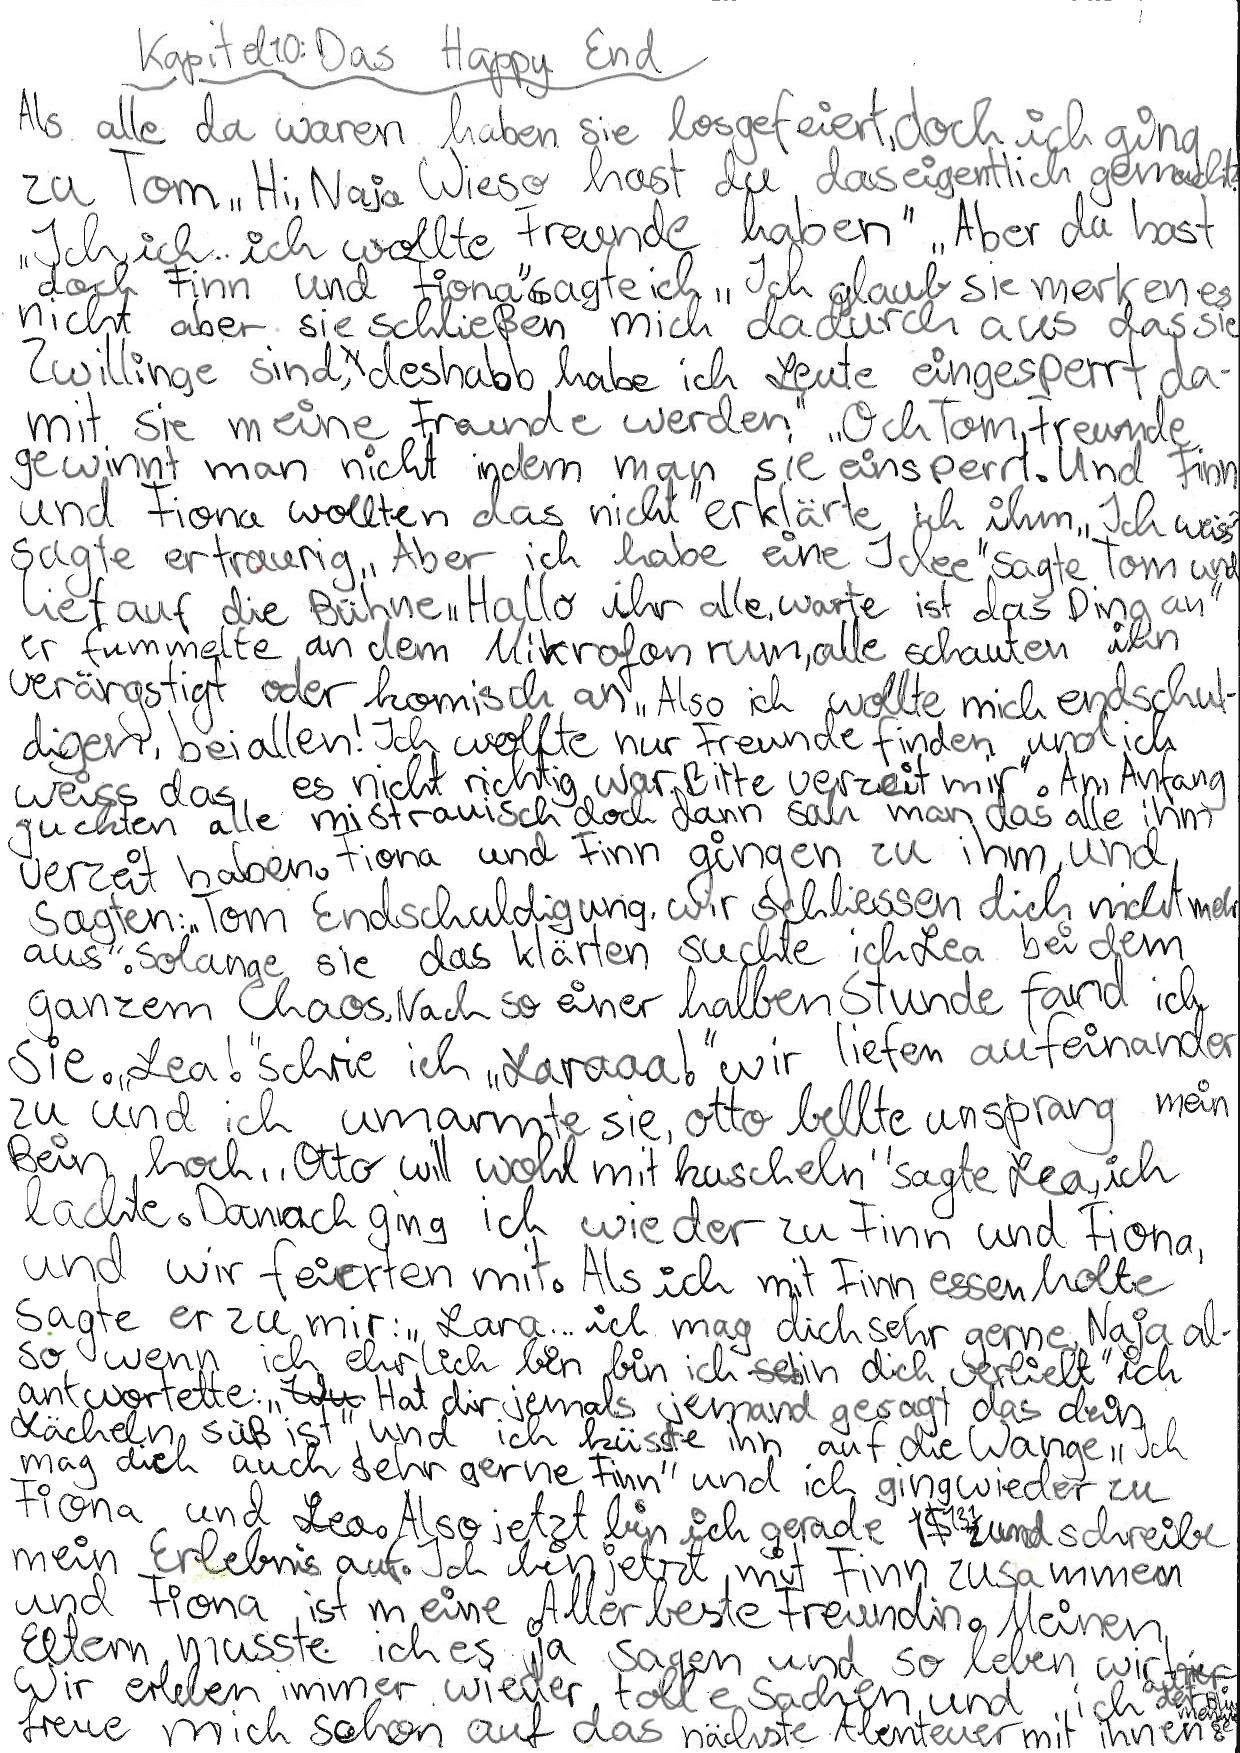 Kapitel 10: Das Happy End
Als alle da waren haben sie losgefeiert, doch ich ging
zu Tom „Hi, Naja Wieso hast du das eigentlich gemacht?
„Ich ich... ich wollte Freunde haben" „Aber du hast
doch Finn und Fiona" sagte ich „Ich glaub sie merken es
nicht aber sie schließen mich dadurch aus das sie
Zwillinge sind, deshabb habe ich Leute eingesperrt da-
mit sie meine Freunde werden." „Och Tom, Freunde
gewinnt man nicht indem man sie einsperrt. Und Finn
und Fiona wollten das nicht" erklärte ich ihm „Ich weiss"
sagte er traurig „Aber ich habe eine Idee" sagte Tom und
lief auf die Bühne „Hallo ihr alle, warte ist das Ding an"
er fummelte an dem Mikrofon rum, alle schauten ihn
verärgstigt oder komisch an „Also ich wollte mich endschul-
digen, bei allen! Ich wollte nur Freunde finden und ich
weiss das es nicht richtig war. Bitte verzeit mir". Am Anfang
guckten alle mistrauisch doch dann sah man das alle ihm
verzeit haben. Fiona und Finn gingen zu ihm, und
sagten: „Tom Endschuldigung. wir schliessen dich nicht mehr
aus". Solange sie das klärten suchte ich Lea bei dem
ganzem Chaos. Nach so einer halben Stunde fand ich
sie. „Lea!" schrie ich „Laraaa!" wir liefen aufeinander
zu und ich umarmte sie, otto bellte un sprang mein
Bein hoch. „Otto will wohl mit kuscheln" sagte Lea, ich
lachte. Danach ging ich wieder zu Finn und Fiona,
und wir feierten mit. Als ich mit Finn essen holte
sagte er zu mir: „Lara... ich mag dich sehr gerne. Naja al-
so wenn ich ehrlich bin bin ich in dich verliebt" ich
antwortette: „Hat dir jemals jemand gesagt das dein
Lächeln süß ist" und ich küsste ihn auf die Wange „Ich
mag dich auch sehr gerne Finn" und ich ging wieder zu
Fiona und Lea. Also jetzt bin ich gerade und schreibe
mein Erlebnis auf. Ich bin jetzt mit Finn zusammen
und Fiona ist meine Allerbeste Freundin. Meinen
Eltern musste ich es ja sagen und so leben wir
auf der
Wir erleben immer wieder tolle Sachen und ich
freue mich schon auf das nächste Abenteuer mit ihnen